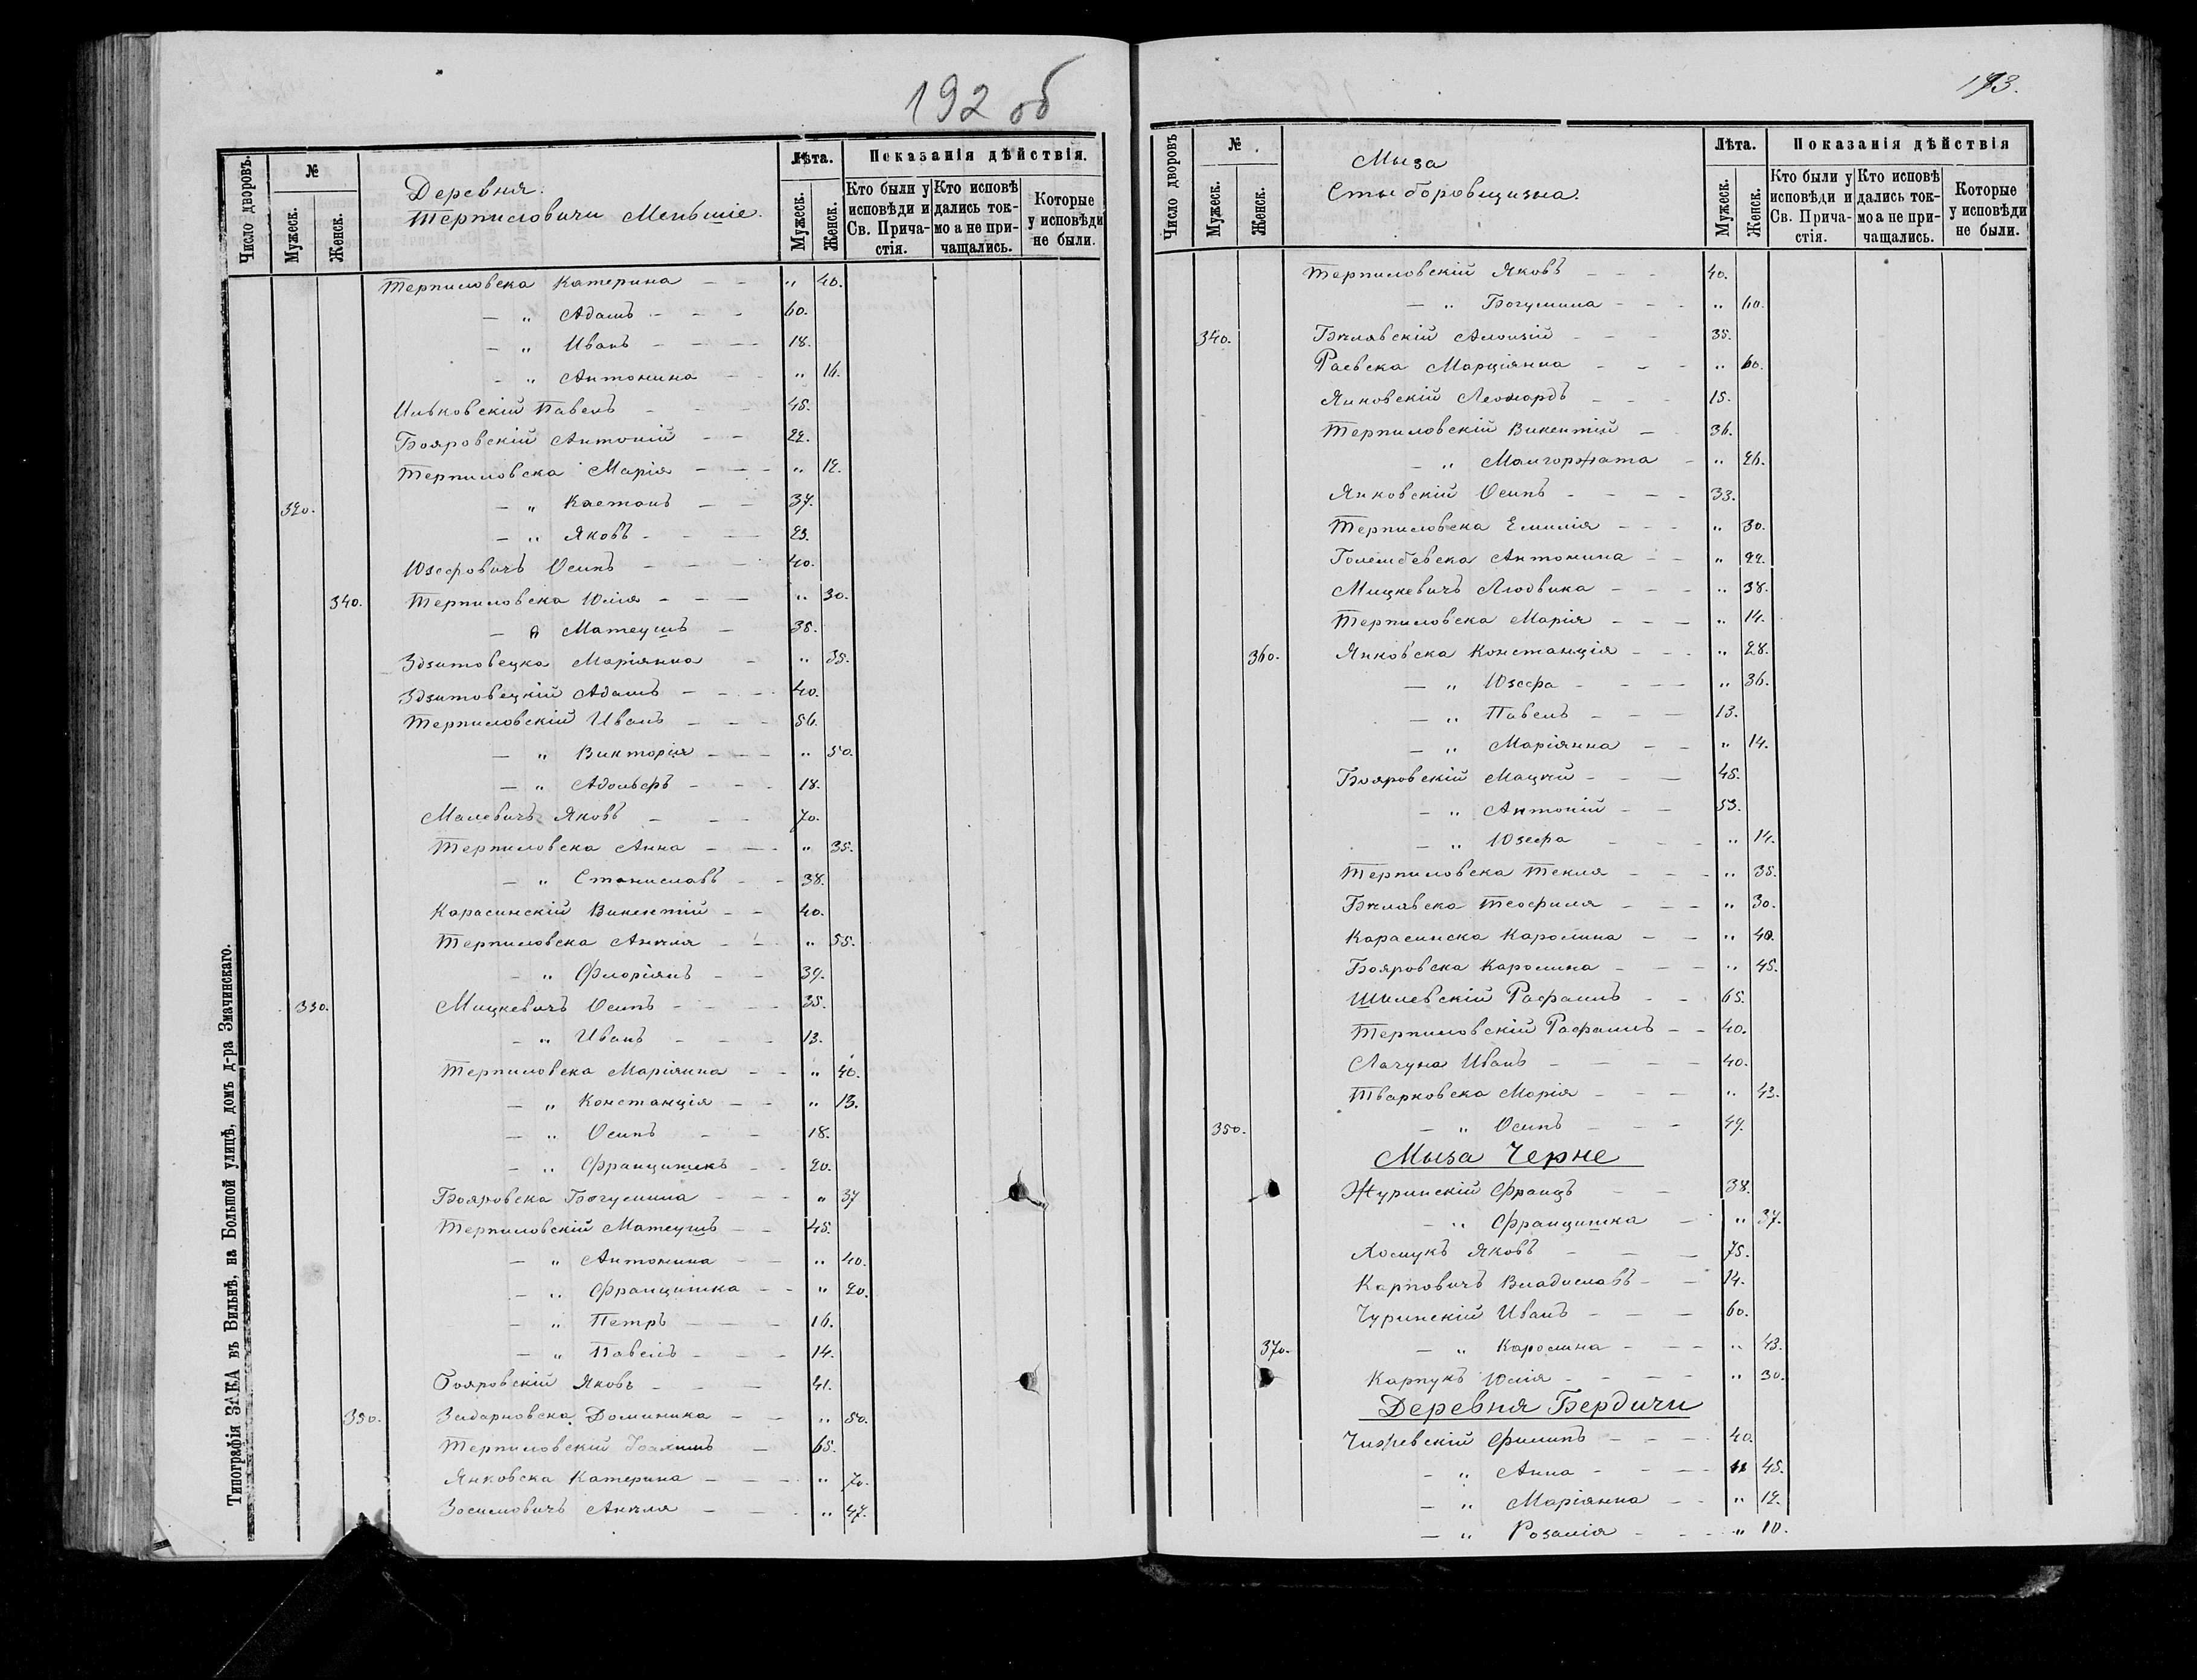 192 об
Число дворовъ.
№
Мужеск.
Женск.
Деревня
Терпиловичи Меньшіе.
Лѣта.
Мужеск.
Женск.
Показанія дѣйствія.
Кто были у исповѣди и Св. Прича-стія.
Кто исповѣ дались ток-мо а не при-чащались.
Которые у исповѣди не были.
Терпиловска Катерина — — „ 40.
— „ Адамъ — — — 60.
— „ Иванъ — — — 18.
— „ Антонина — — „ 16.
Ильковскій Павелъ — — — 45.
Бояровскій Антоній — — 22.
Терпиловска Марія — — — „ 12.
320. — „ Каетанъ — — 37.
— „ Яковъ — — — 23.
Юзефовичъ Осипъ — — — 40.
340. Терпиловска Юлія — — — „ 30.
— „ Матеушъ — 38.
Здзитовецка Маріянна — „ 35.
Здзитовецкій Адамъ — — — 40.
Терпиловскій Иванъ — — — 56.
— „ Викторія — — — „ 50.
— „ Адольфъ — — — 18.
Малевичъ Яковъ — — — 70.
Терпиловска Анна — — — „ 35.
— „ Станиславъ — — 38.
Карасинскій Викентій — — 40.
Терпиловска Анеля — — „ 55.
— „ Флоріянъ — — 39.
330. Мицкевичъ Осипъ — — — 35.
— „ Иванъ — — — 13.
Терпиловска Маріянна — — „ 40.
— „ Констанція — — „ 13.
— „ Осипъ — — 18.
— „ Францишекъ — — 20.
Бояровска Богумила — — — „ 37
Терпиловскій Матеушъ — — 45.
— „ Антонина — — „ 40.
— „ Францишка — — „ 20.
— „ Петръ — — — 16.
— „ Павелъ — — — 14.
Бояровскій Яковъ — — — 41.
350. Доминика — — „ 50.
Терпиловскій Іоахимъ — 65.
Янковска Катерина — — — „ 70.
Зосимовичъ Анеля — — — „ 47.
Типографія ЗАКА въ Вильнѣ, на Большой улицѣ, домъ д-ра Змачинскаго.
193.
Число дворовъ
№
Мужеск.
Женск.
Мыза
Стыборовщизна.
Лѣта.
Мужеск.
Женск.
Показанія дѣйствія
Кто были у исповѣди и Св. Прича-стія.
Кто исповѣ дались ток-мо а не при-чащались.
Которые у исповѣди не были.
Терпиловскій Яковъ — — — 40.
— „ Богумила — — — „ 60.
340. Бѣлявскій Алоизій — — — 35.
Раевска Марціянна — — — „ 60.
Янковскій Леонардъ — — — 15.
Терпиловскій Викентій — 36.
— „ Малгоржата — „ 26.
Янковскій Осипъ — — — — 33.
Терпиловска Емилія — — — „ 30.
Голембевска Антонина — — „ 22.
Мицкевичъ Людвика — — — „ 38.
Терпиловска Марія — — — „ 14.
360. Янковска Констанція — — — „ 28.
— „ Юзефа — — — — „ 36.
— „ Павелъ — — — 13.
— „ Маріянна — — „ 14.
Бояровскій Мацѣй — — — 45.
— „ Антоній — — 53.
— „ Юзефа — — — „ 14.
Терпиловска Текля — — — „ 35.
Бѣлявска Теофиля — — — „ 30.
Карасинска Каролина — — „ 40.
Бояровска Каролина — — — „ 45.
Шилевскій Рафаилъ — — 65.
Терпиловскій Рафаилъ — — 40.
Лагуна Иванъ — — — — 40.
Тварковска Марія — — — „ 43.
350. — „ Осипъ — — — 49.
Мыза Черне
Журинскій Францъ — — 38.
— „ Францишка — „ 37.
Яковъ — — — 75.
Карповичъ Владиславъ — — 14.
Чуринскій Иванъ — — — 60.
370. — „ Каролина — — — „ 43.
Карпукъ Юлія — — — — „ 30.
Деревня Бердичи
Чижевскій Филипъ — — — 40.
— „ Анна — — — — „ 45.
— „ Маріянна — — „ 12.
— „ Розалія — — — „ 10.